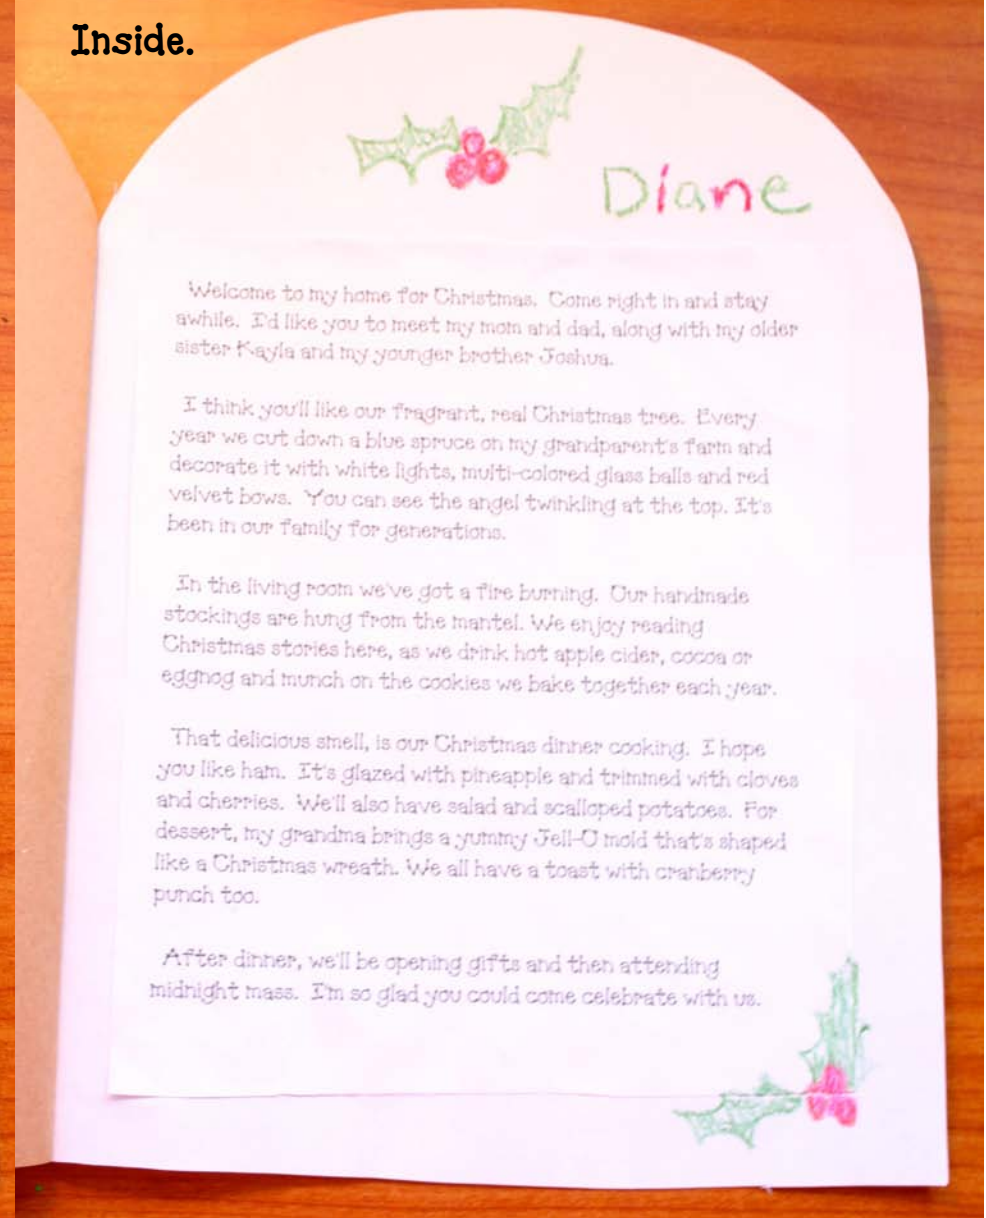 Inside.
Diane
Welcome to my home for Christmas. Come right in and stay
awhile. I'd like you to meet my mom and dad, along with my older
sister Kayla and my younger brother Joshua.
I think you'll like our fragrant, real Christmas tree. Every
year we cut down a blue spruce on my grandparent's farm and
decorate it with white lights, multi-colored glass balls and red
velvet bows. You can see the angel twinkling at the top. It's
been in our family for generations.
In the living room we've got a fire burning. Our handmade
stockings are hung from the mantel. We enjoy reading
Christmas stories here, as we drink hot apple cider, cocoa or
eggnog and munch on the cookies we bake together each year.
That delicious smell, is our Christmas dinner cooking. I hope
you like ham. It's glazed with pineapple and trimmed with cloves
and cherries. We'll also have salad and scalloped potatoes. For
dessert, my grandma brings a yummy Jell-O mold that's shaped
like a Christmas wreath. We all have a toast with cranberry
punch too.
After dinner, we'll be opening gifts and then attending
midnight mass. I'm so glad you could come celebrate with us.